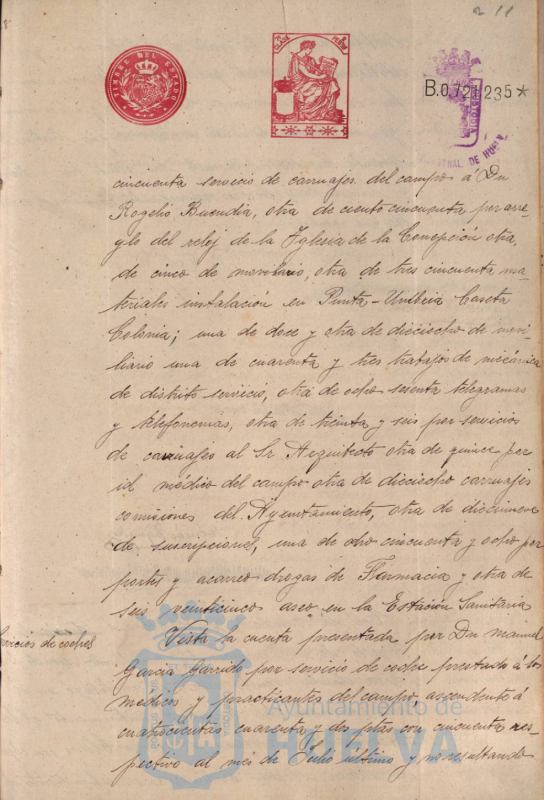 211
TIMBRE DEL ESTADO
B.0,721,235*
HUELVA
cincuenta servicio de carruajes del campo á Dn
Rogelio Buendia, otra de ciento cincuenta por arre-
glo del reloj de la Iglesia de la Concepción otra,
de cinco de moviliario, otra de tres cincuenta ma-
teriales instalación en Punta-Umbria Caseta
Colonia; una de doce y otra de dieciocho de movi-
liario una de cuarenta y tres trabajos de mecánica
de distrito servicio, otra de ocho sesenta telegramas
y telefonemas, otra de treinta y seis por servicios
de carruajes al Sr Arquitecto otra de quince por
id médico del campo otra de dieciocho carruajes
comisiones del Ayuntamiento, otra de diecinueve
de suscripciones, una de ocho cincuenta y ocho por
portes y acarreo drogas de Farmacia y otra de
seis veinticinco aseo en la Estación Sanitaria
Servicios de coches
Vista la cuenta presentada por Dn Manuel
Garcia Garrido por servicio de coche prestado á los
medicos y practicantes del campo, ascendente á
cuatrocientas cuarenta y dos ptas con cincuenta res-
pectivo al mes de Julio ultimo y no resultando
Ayuntamiento de
HUELVA